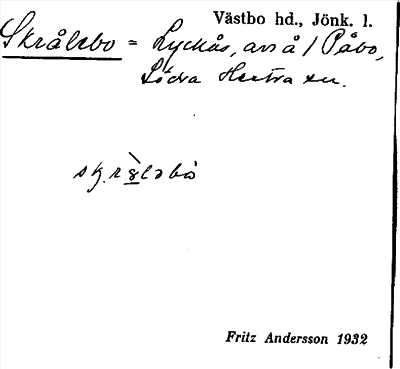 Västbo hd., Jönk. l.
Skrålebo = Lyckås, avs å / Påbo,
Södra Hestra sn.
Fritz Andersson 1932